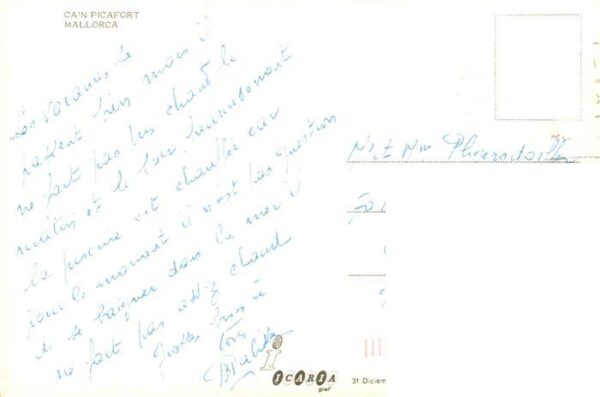 CA'N PICAFORT
MALLORCA
Les vacances se
passent bien mais il
ne fait pas très chaud le
matin et le soir, heureusement
la piscine est chauffée car
pour le moment il n'est pas question
de se baigner dans la mer il
ne fait pas assez chaud
Grosses bises à
tous
Mr et Mme
ICARIA
graf
31 Diciem